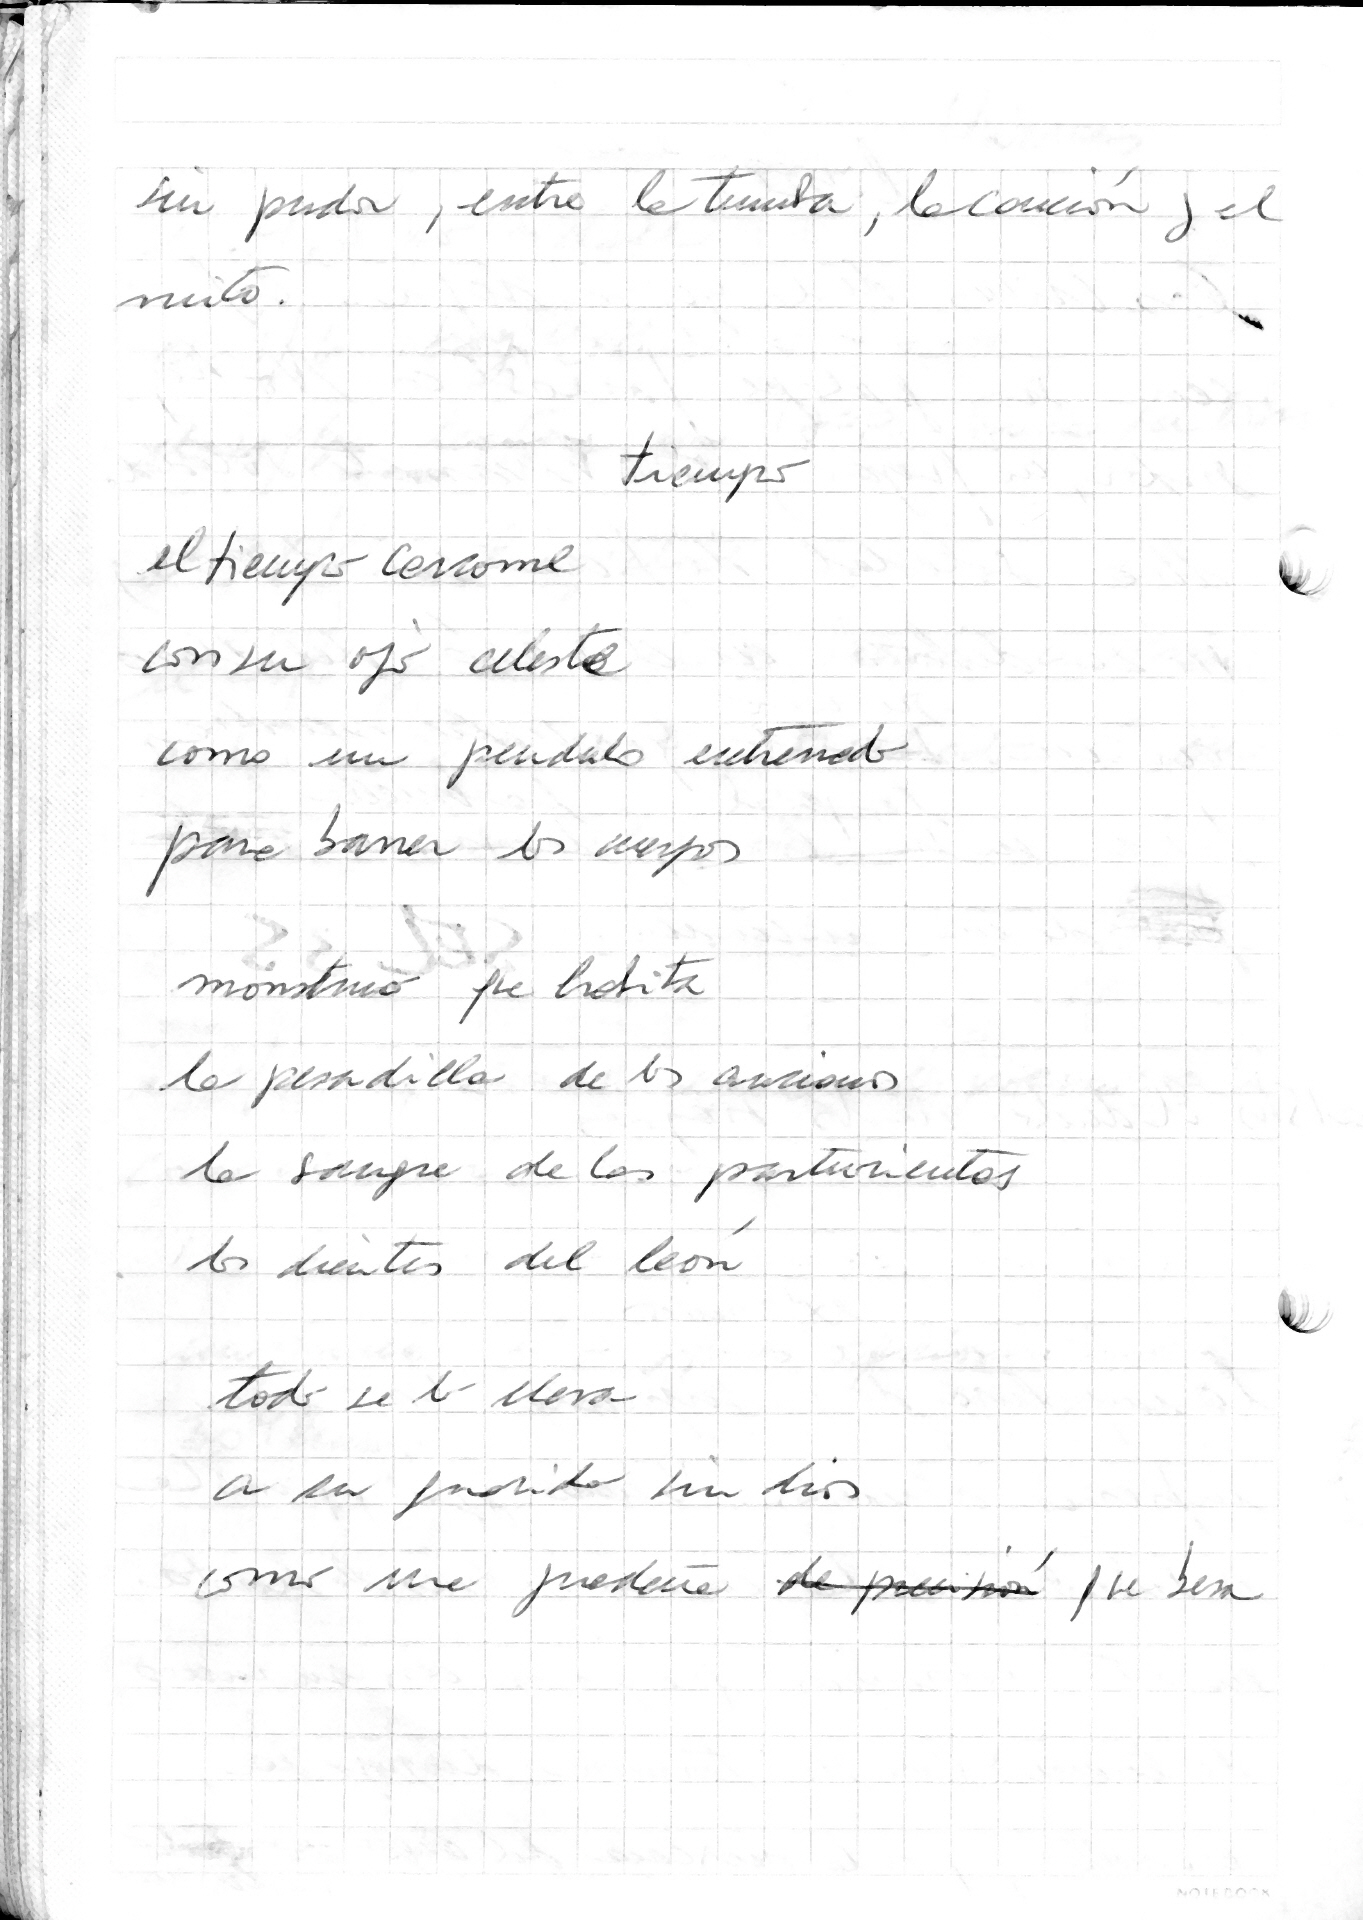 sin pudor, entre la tumba, la canción y el
mito.
tiempo
el tiempo carcome
con su ojo celeste
como un pendulo entrenado
para barrer los cuerpos
monstruo que habita
la pesadilla de los ancianos
la sangre de las parturientas
los dientes del león
todo se lo lleva
a su guarida sin dios
como una guadaña de precisión que besa
NOTEBOOK